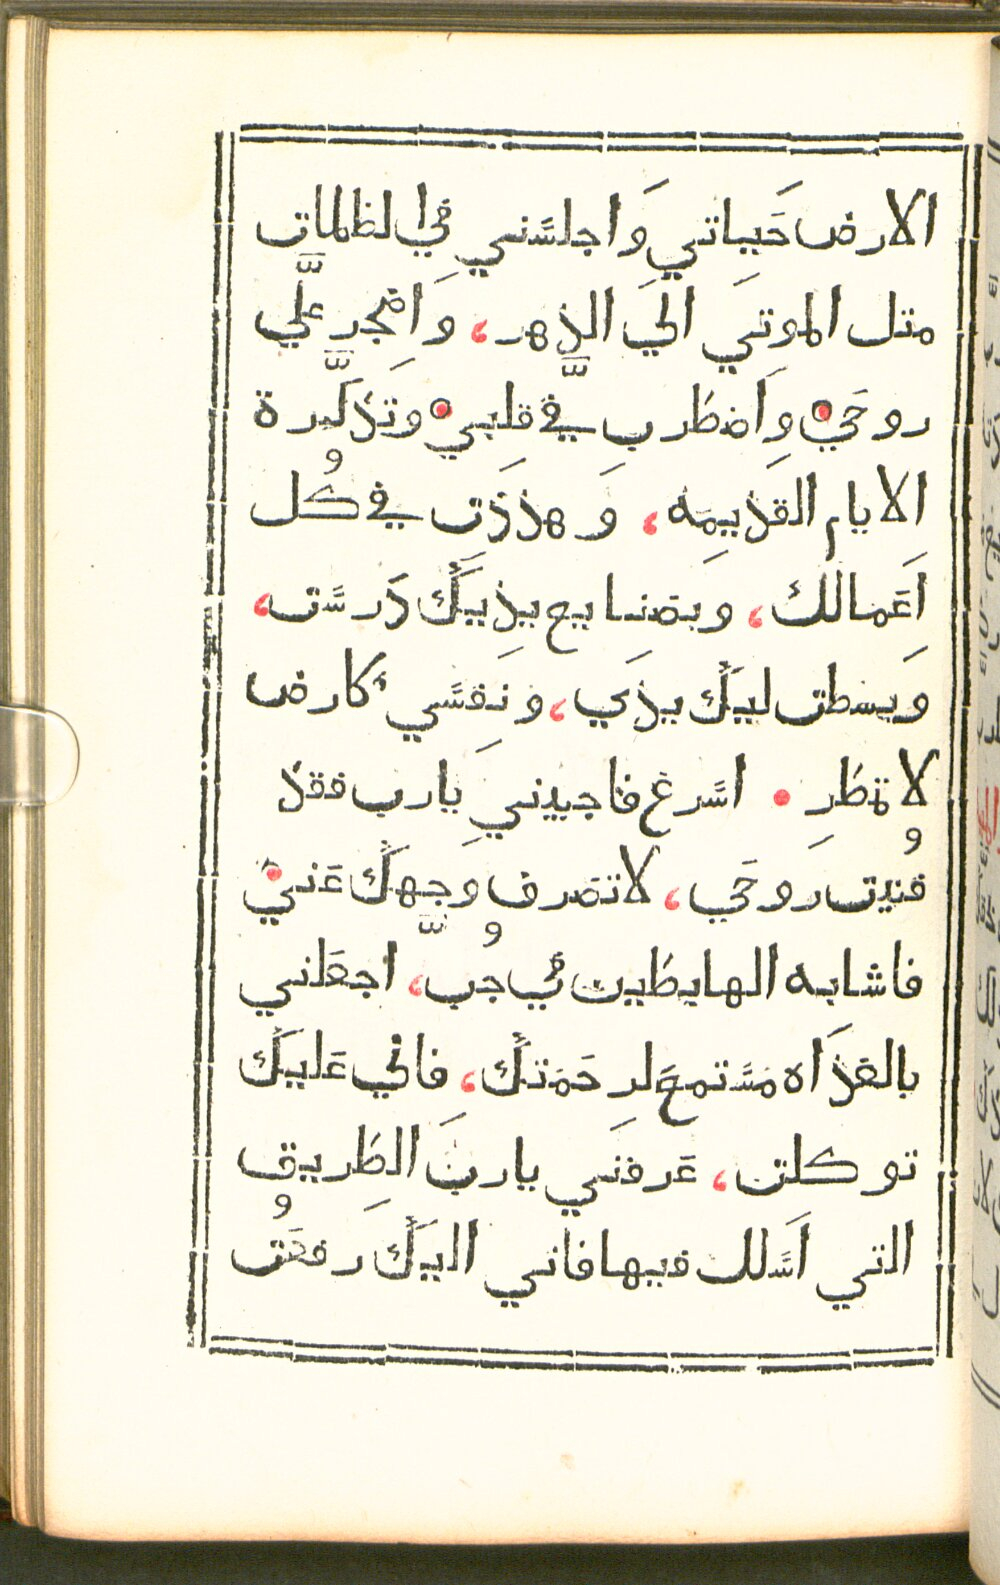 الارض حَيباتي وَاجلسَني في الظلمات
متل الموتَي اليَ الدهر، وَاضجر علَّي
روحَي وَاضطَرب في قلبي وتذكرة
الايام القديمَه، وَهذذَت في كُل
اعَمالكَ، وبصَنايع يدِيكَ دَرسَت،
وَبسطت ليكَ يدَي، ونفسَي كارض
لا تمطَر. اسَرع فاجيبنيِ يارب فقد
فنيت رَوحَي، لا تصَرف وجَّهكَ عَني
فاشابه الهابطَين في جُب، اجعَلني
بالغدَاه مسَتمعَ لرحَمتكَ، فاني عَليكَ
توكلت، عَرفنَي يارب الطَريق
التي اسَلك فيها فاني اليكَ رفعَتُ